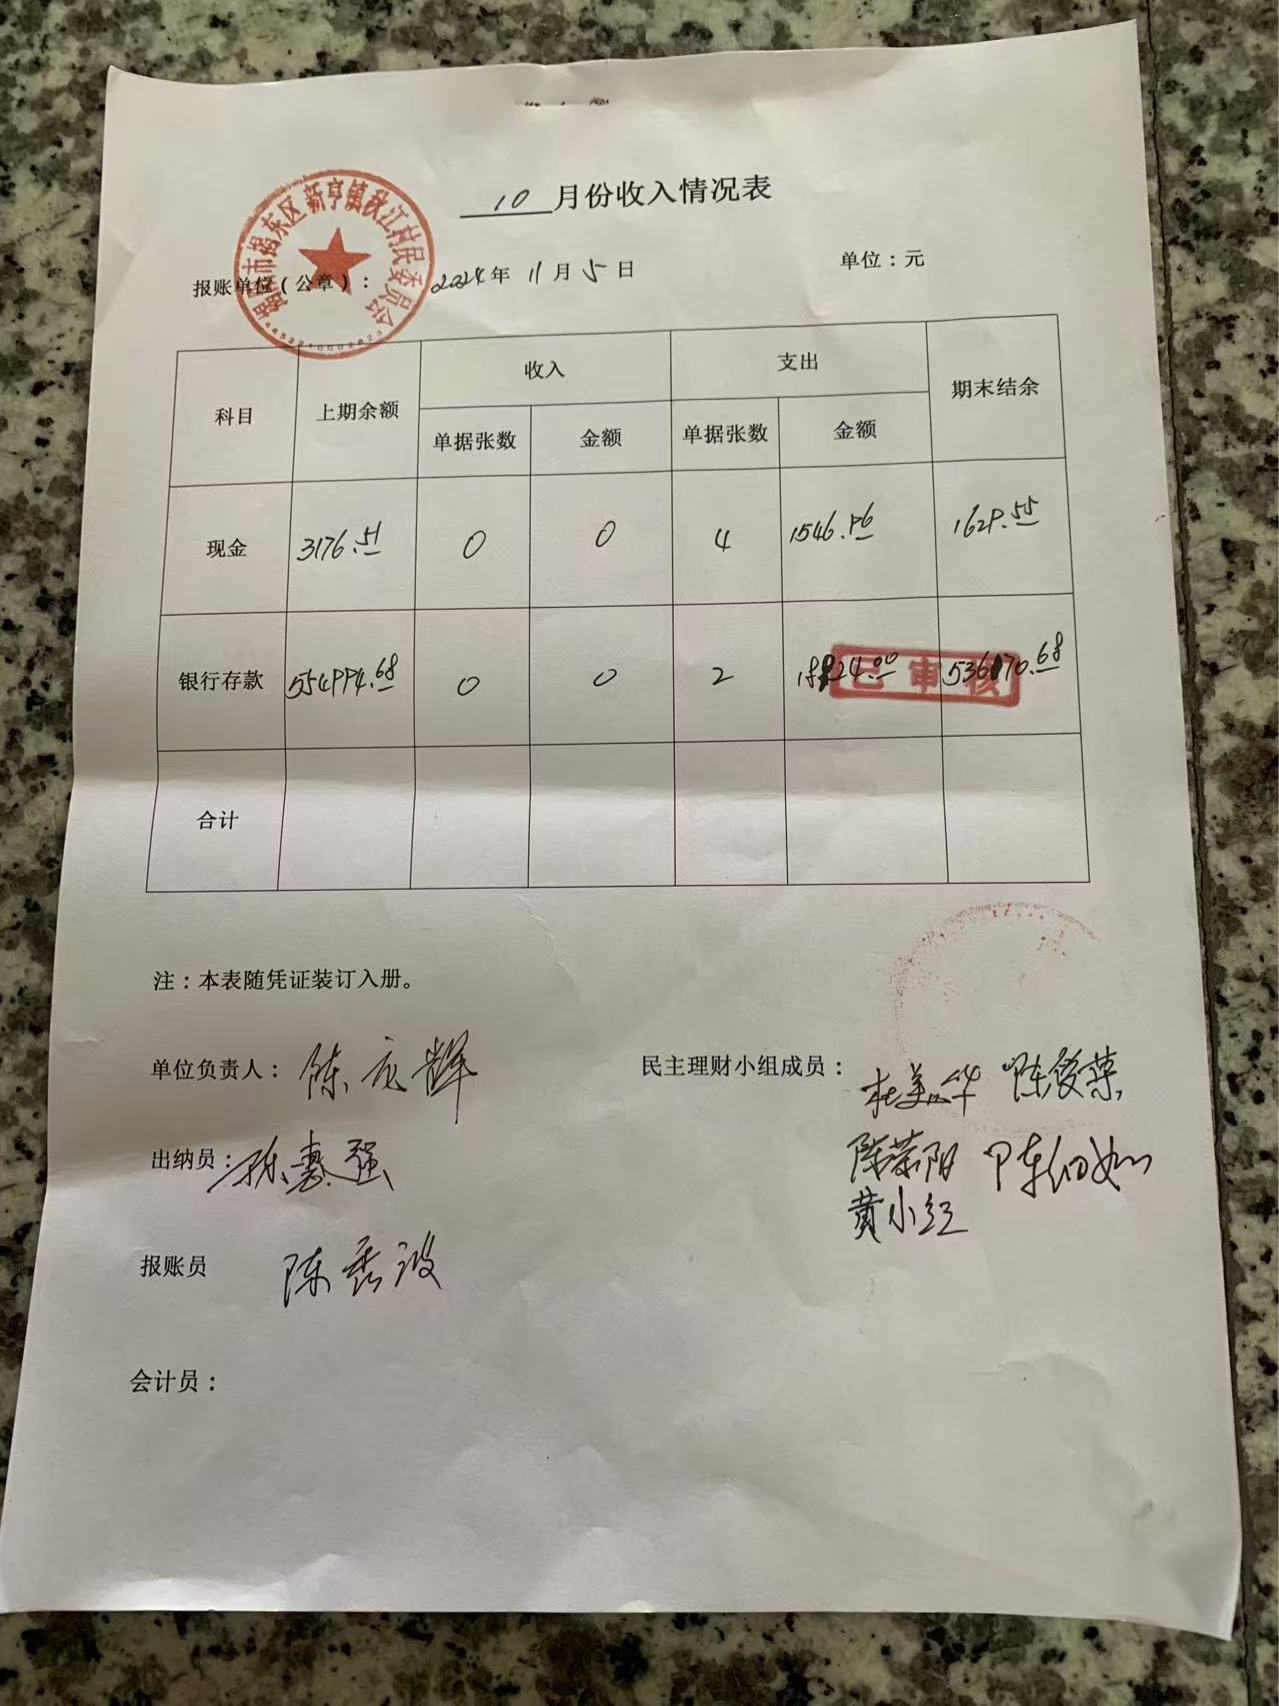 10月份收入情况表
揭阳市揭东区新亨镇秋江村民委员会
报账单位(公章): 2024年 11月 5日 单位:元
科目 上期余额 收入 支出 期末结余
单据张数 金额 单据张数 金额
现金 3176.51 0 0 4 1546.96 1629.55
银行存款 554994.68 0 0 2 536170.68
已审核
合计
注:本表随凭证装订入册。
单位负责人: 民主理财小组成员: 杜美华
出纳员: 陈荣阳
黄小红
报账员 陈秀波
会计员: